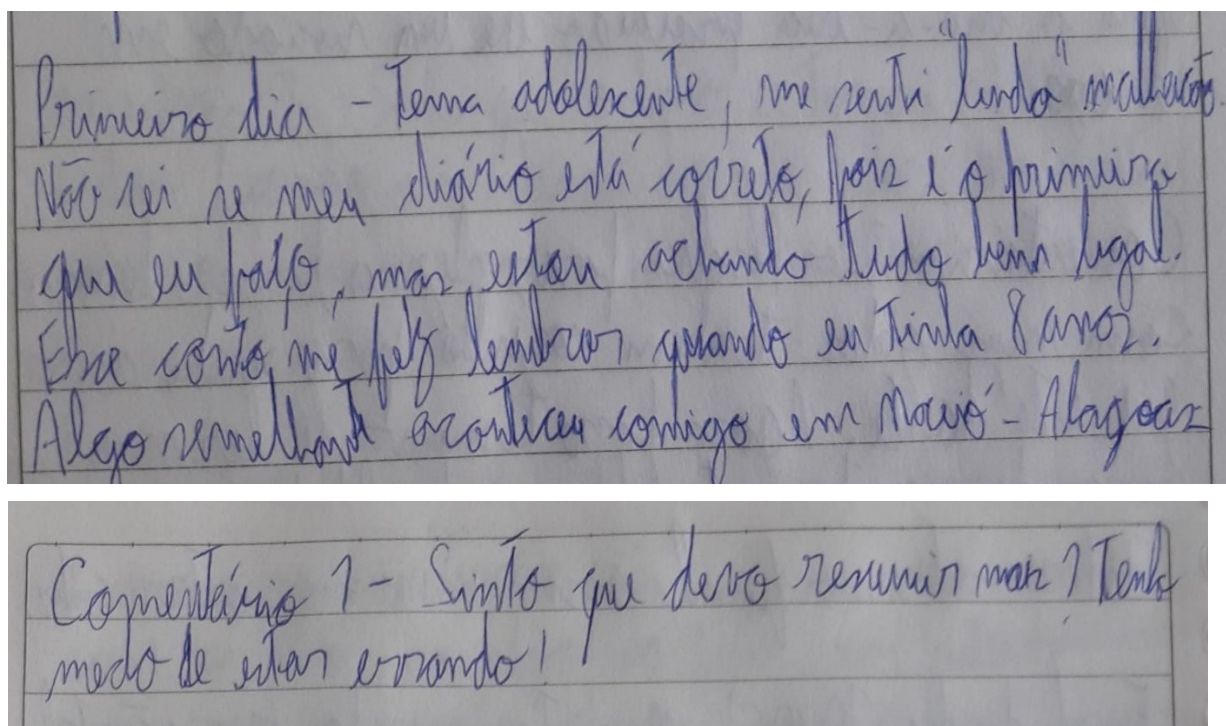 Primeiro dia - Tema adolescente, me senti "lendo" malhação.
Não sei se meu diário está correto, pois é o primeiro
que eu faço, mas estou achando tudo bem legal.
Esse conto, me fez lembrar quando eu tinha 8 anos.
Algo semelhante aconteceu comigo em Maceió - Alagoas
Comentário 1 - Sinto que devo resumir mais? Tenho
medo de estar errando!